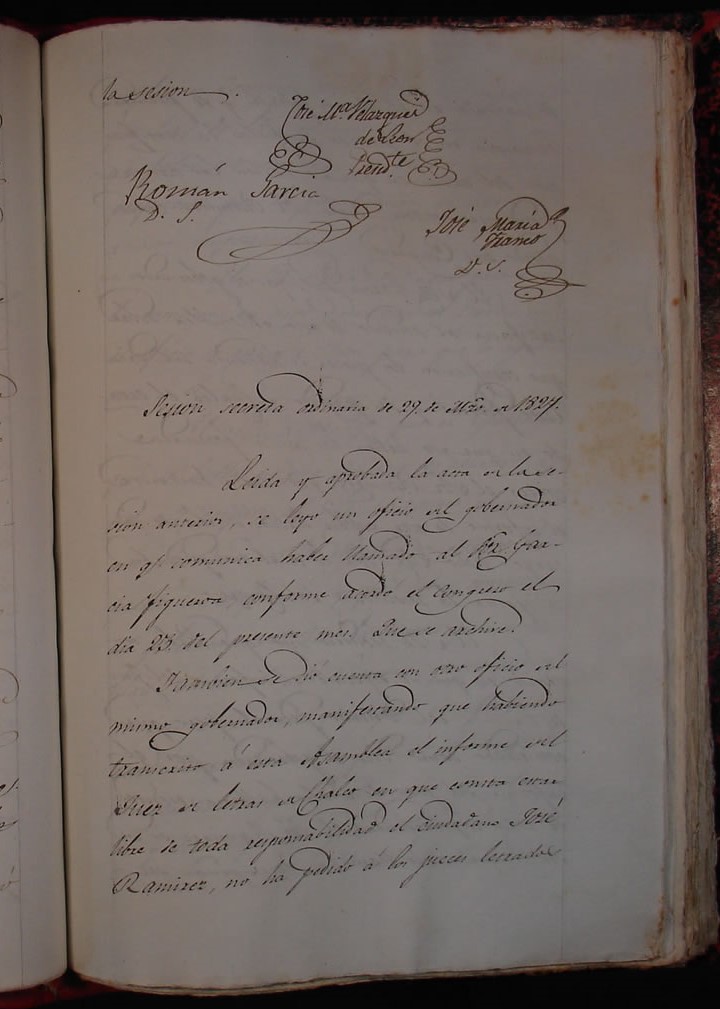 la sesion.
José Ma. Velazquez
de Leon
Presid.te
Román Garcia
D. S.
José María
Franco
D. S.
Sesion secreta ordinaria de 29. de Mzo. de 1827.
Leida y aprobada la acta de la se-
sion anterior, se leyo un oficio del gobernador
en q.e comunica haber llamado al Gar-
cia Figueroa, conforme acordó el Congreso el
dia 23. del presente mes. Que se archive.
Tambien se dió cuenta con otro oficio del
mismo gobernador, manifestando que habiendo
transcrito á esta Asamblea el informe del
Juez de letras de Chalco en que consta estar
libre de toda responsabilidad el ciudadano José
Ramirez, no ha pedido á los jueces letrados